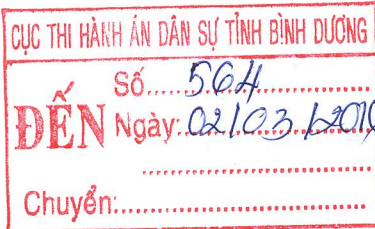 CỤC THI HÀNH ÁN DÂN SỰ TỈNH BÌNH DƯƠNG
ĐẾN
Số.....564.....
Ngày:.02/03/2010
Chuyển:.....